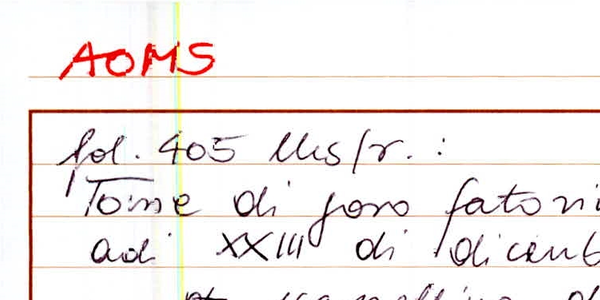 AOMS
fol. 405 lhs/r. :
Tome di goro fatori
adi XXIII di dicemb